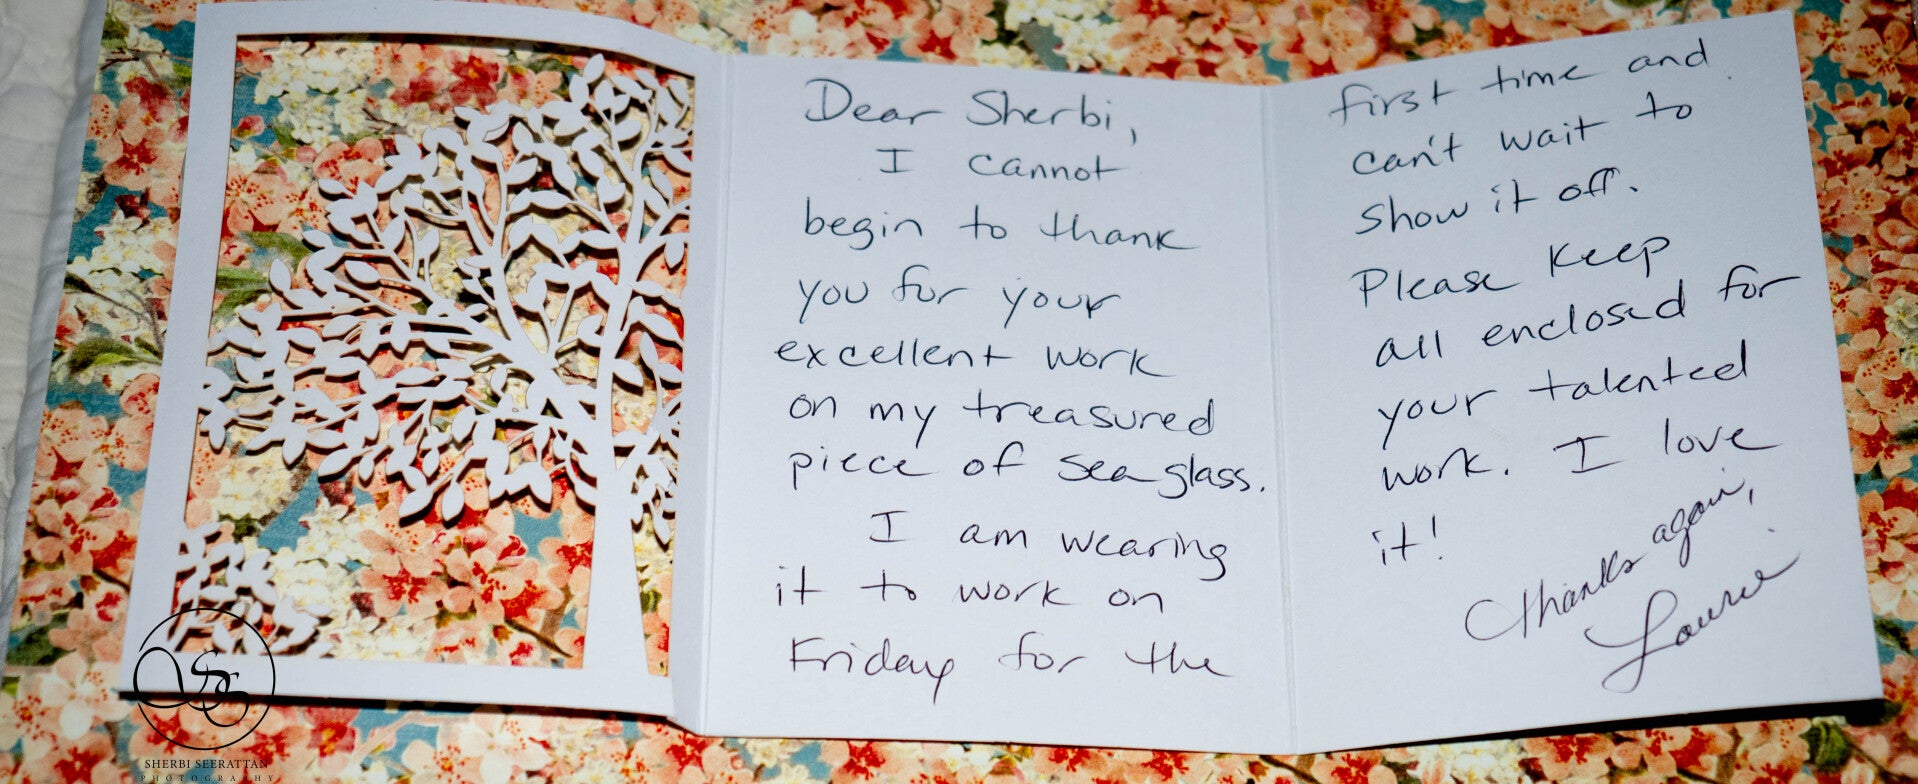 Dear Sherbi,
I cannot
begin to thank
you for your
excellent work
on my treasured
piece of sea glass.
I am wearing
it to work on
Friday for the
first time and
can't wait to
show it off.
Please keep
all enclosed for
your talented
work. I love
it!
Thanks again,
Laurie
SHERBI SEERATTAN
PHOTOGRAPHY